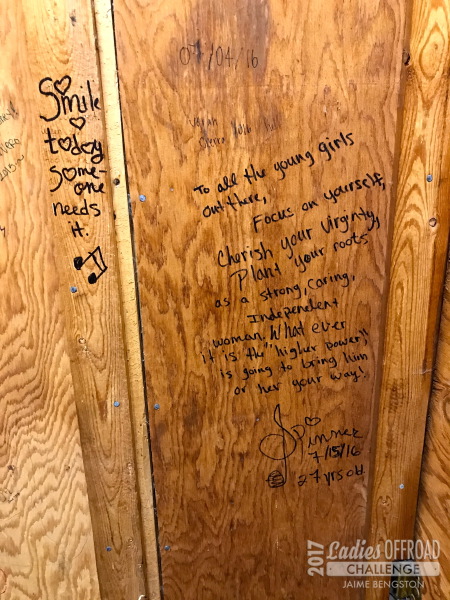 Smile
today
some-
one
needs
it.
2015
07/04/16
To all the young girls
out there,
Focus on yourself,
Cherish your virginty,
Plant your roots
as a strong, caring,
Independent
woman. What ever
it is the "higher power"
is going to bring him
or her your way!
7/15/16
27 yrs old
2017 Ladies OFFROAD
CHALLENGE
JAIME BENGSTON